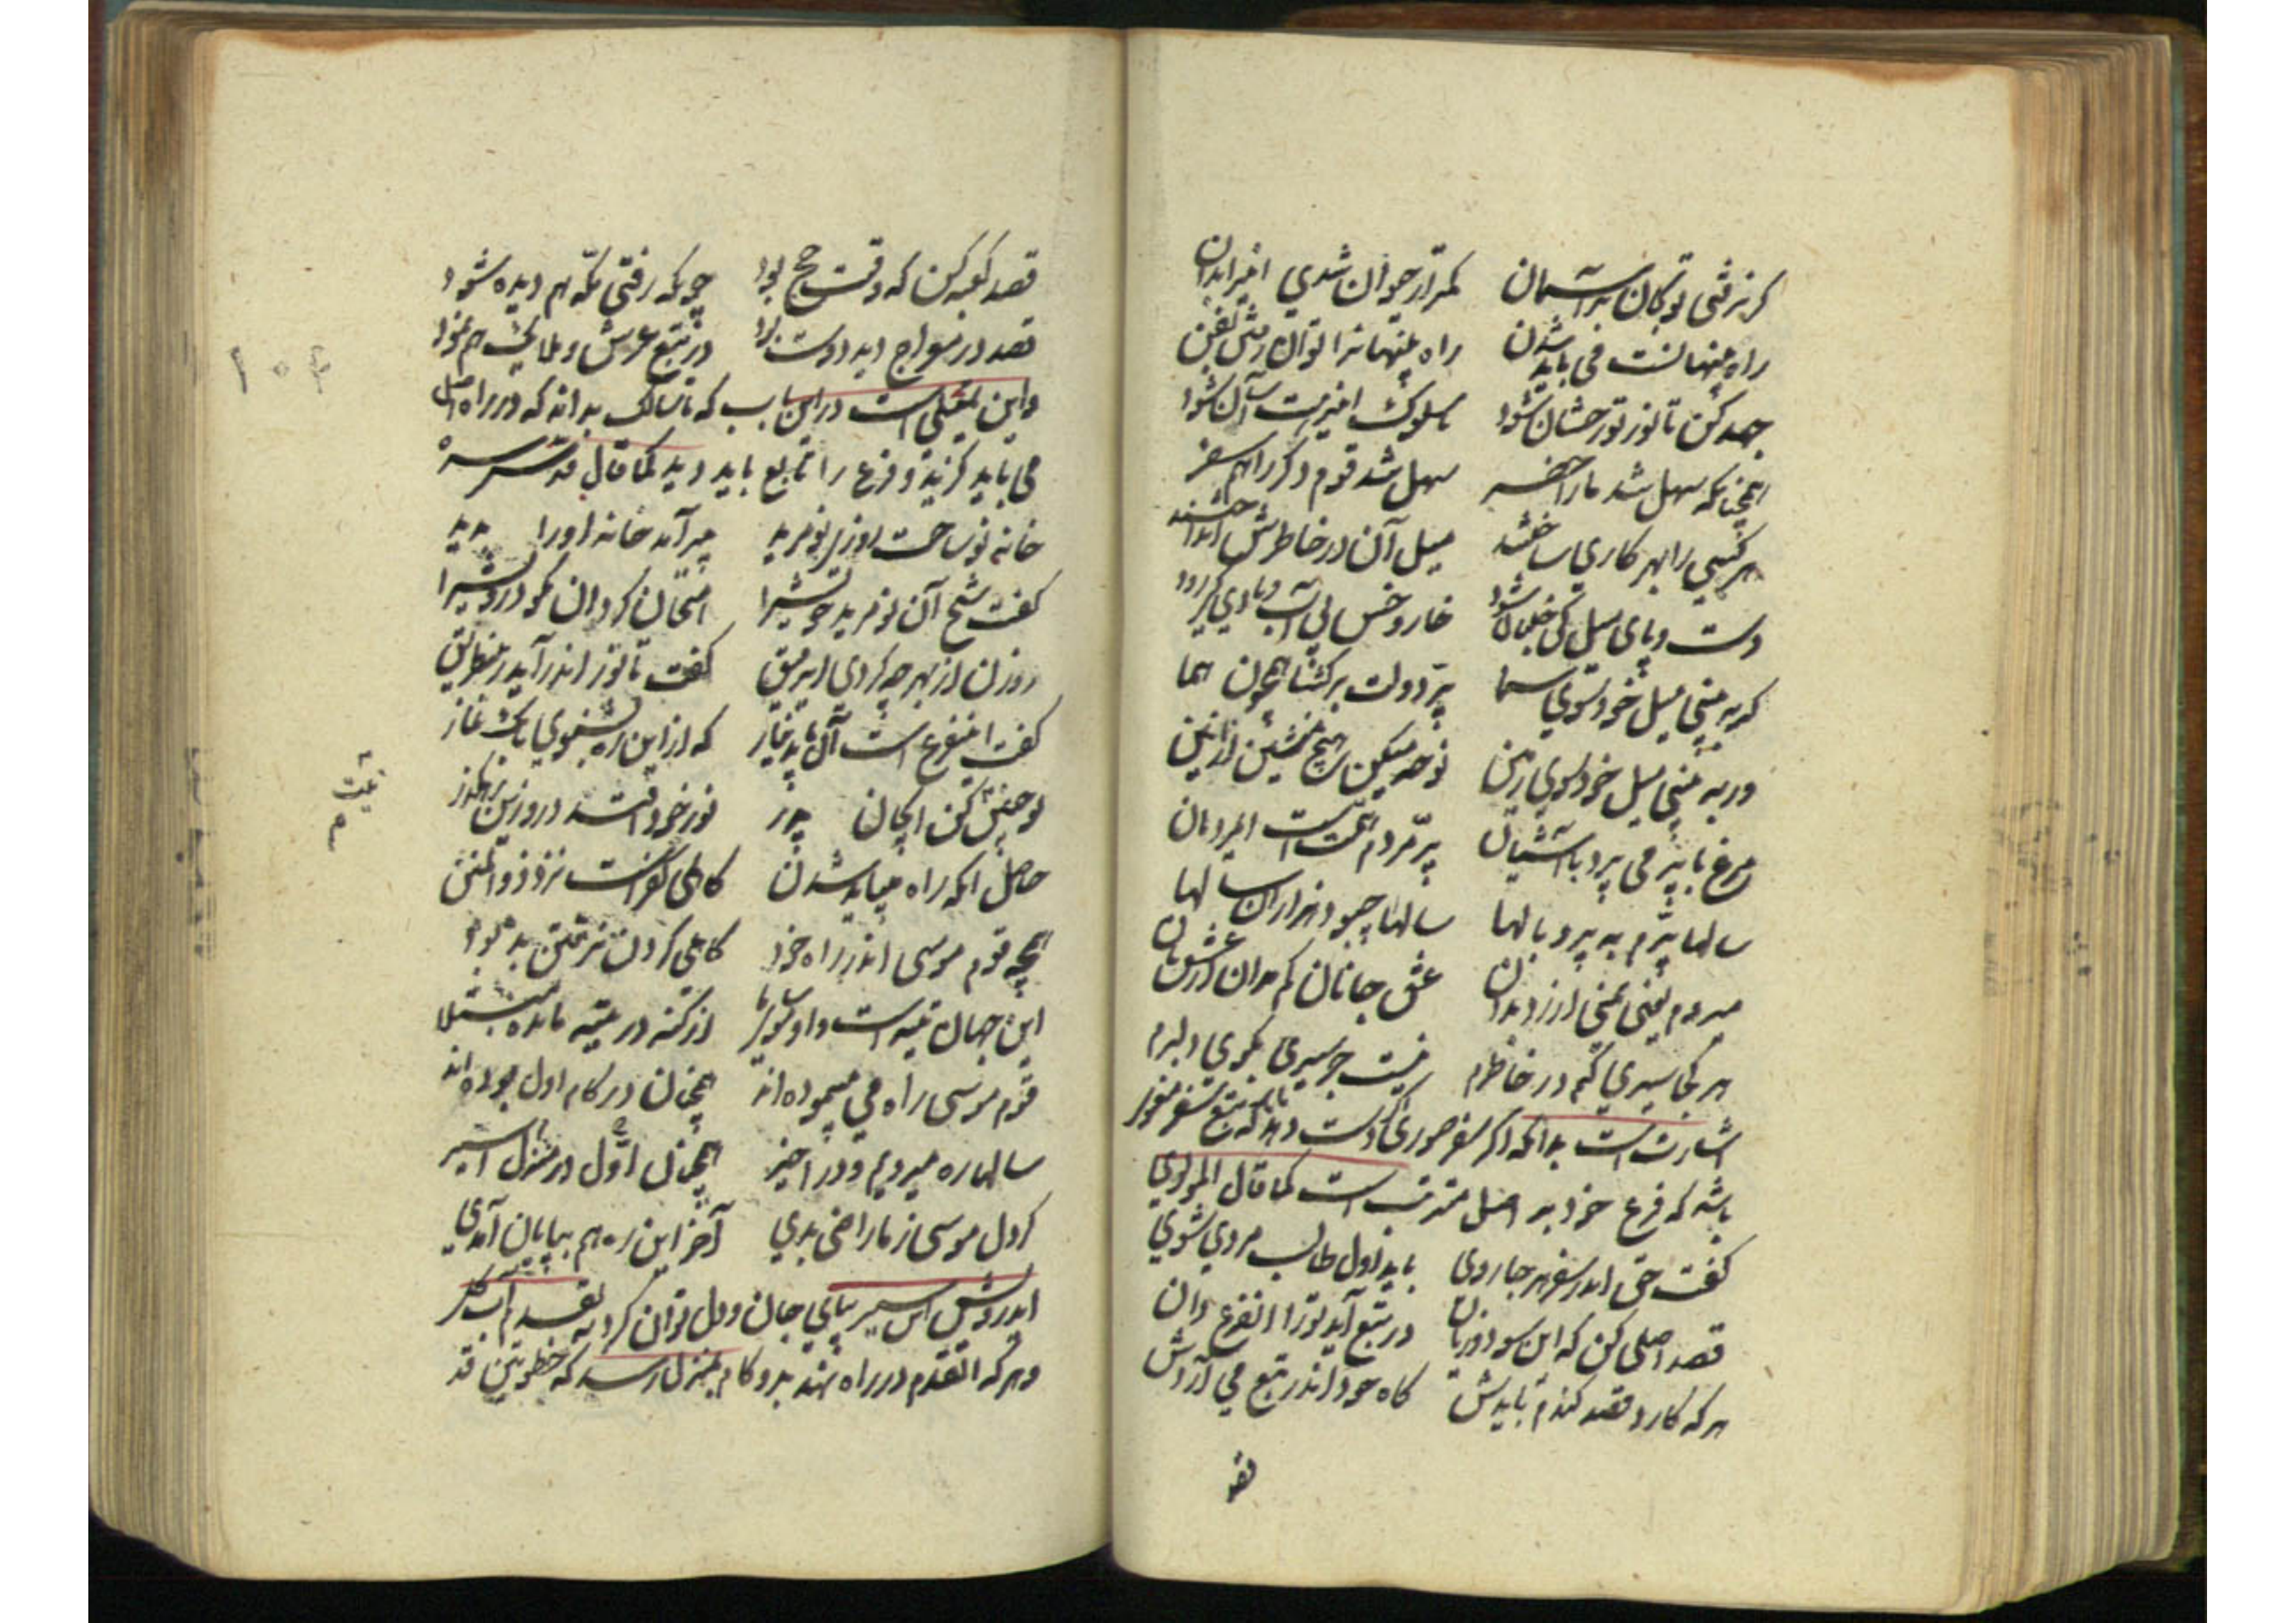 کر نرفتی تو کان بر آسمان کمتر از حیوان شدی
راه پنهانست می باید شدن راه پنهان را توان رفتن
جهد کن تا نور تو رخشان شود تا سلوک آسان شود
همچنانکه سهل شد ما را حضر سهل شد قوم دکر را هم سفر
هر کسی را بهر کاری ساختند میل آن در خاطرش انداختند
دست و پا بی میل کی جنبان شود خار و خس بی آب و بادی کی رود
کر به بینی میل خود سوی سما پر دولت بر کشا همچون هما
ور به بینی میل خود سوی زمین نوحه میکن هیچ منشین از انین
مرغ با پر می پرد با آشیان پر مردم همتست ای مردمان
سالها پرم به پر و بالها سالها چبود هزاران سالها
میروم یعنی نمی ارزد بدان عشق جانان کم مدان از عشق نان
هر کجا سیری کنم در خاطرم نیست جز سیری بکوی دلبرم
اشارت است بدانکه اکر سفر صوری دست دهد باید که بتبع سفر
باشد که فرع خود به اصل مترتب است کما قال المولوی
کفت حق اندر سفر هر جا روی باید اول طالب مردی شوی
قصد اصلی کن که این سود و زیان در تبع آید تو آنرا فرع دان
هر که کارد قصد کندم بایدش کاه خود اندر تبع می آیدش
قصد
۱۰۴
قصد کعبه کن که وقت حج بود چونکه رفتی مکه هم دیده شود
قصد در معراج دید دوست بود در تبع عرش و ملایک هم نمود
و این نقلی است در این باب که تا سالک بداند که در راه اصل
می باید کزید و فرع را تابع باید دید کما قال قدس سره
خانه نو ساخت روزی نو مرید پیر آمد خانه او را بدید
کفت شیخ آن نو مرید خویش را امتحان کرد آن نکو اندیش را
روزن از بهر چه کردی ای رفیق کفت تا نور اندر آید زین طریق
کفت آن فرع است آن باید نیاز که ازین ره بشنوی بانک نماز
نور خود افتد در روزن
حاصل آنکه راه میباید شدن کاهلی کفر است نزد ذو المنن
همچو قوم موسی اندر راه خود کاهلی کردن نرفتن بد بود
این جهان تیه است و از کنه در تیه مانده مبتلا
قوم موسی راه می پیموده اند همچنان در کام اول بوده اند
سالها ره میرویم و در اخیر همچنان در منزل اول اسیر
کر دل موسی ز ما راضی بدی آخر این ره هم بپایان آمدی
ای درویش این سیر بپای جان و دل توان کرد نه بقدم آب و کل
و هر که این قدم در راه نهد بدو کام بمنزل رسد که خطوتین و قد